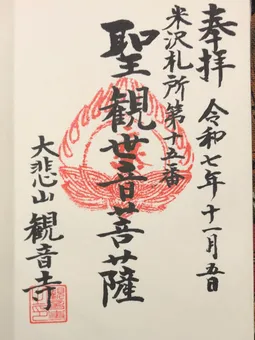 奉拝 令和七年十一月五日
米沢札所第十五番
聖観世音菩薩
大悲山 観音寺